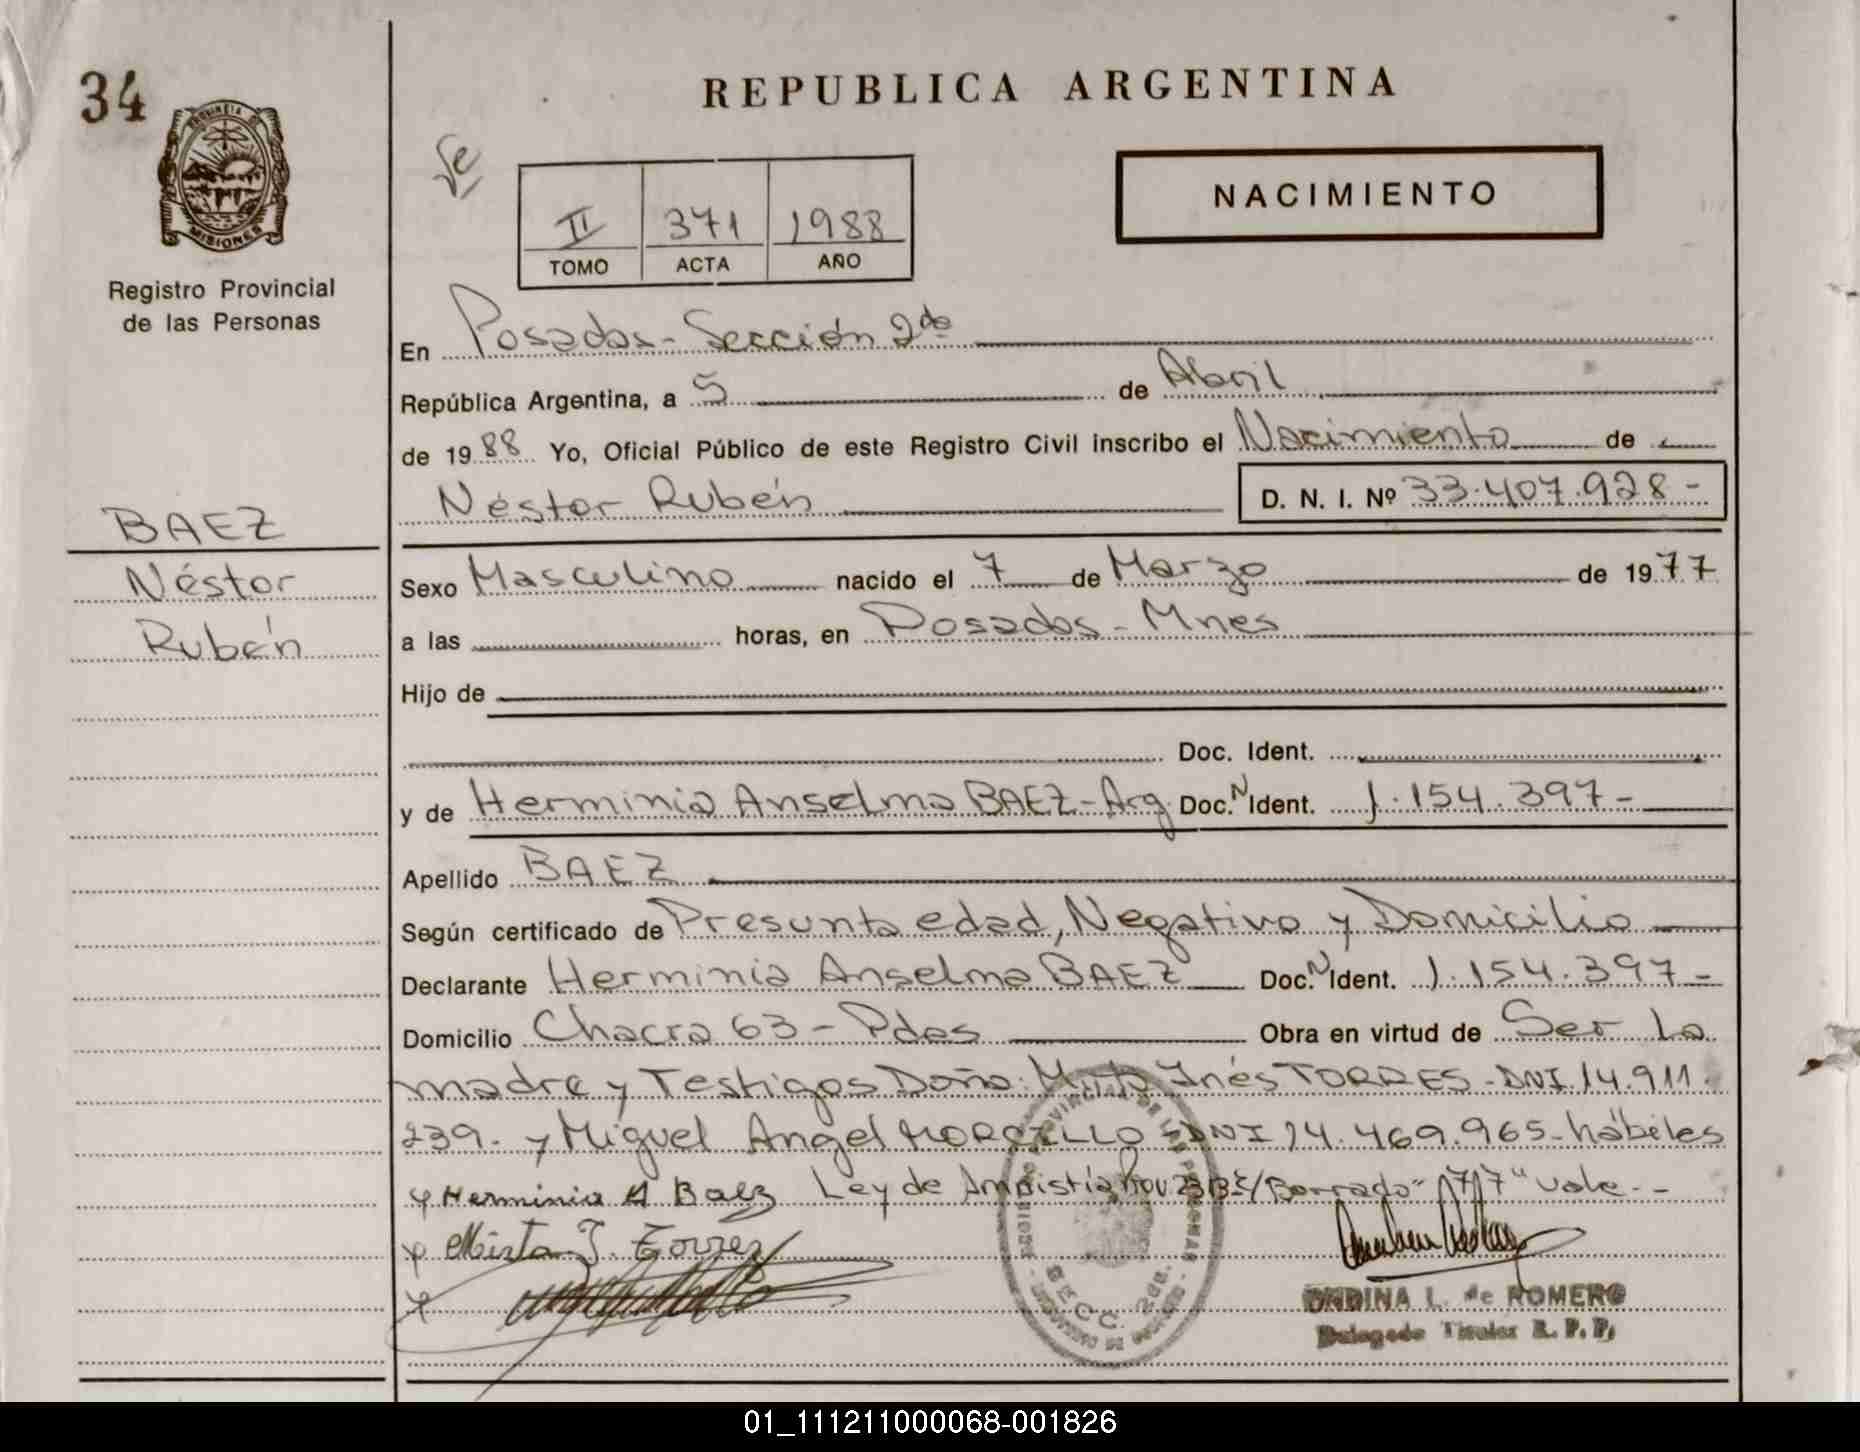 34
REPUBLICA ARGENTINA
PROVINCIA DE
MISIONES
Registro Provincial
de las Personas
NACIMIENTO
II 371 1988
TOMO ACTA AÑO
En Posadas - Sección 2da
República Argentina, a 5 de Abril
de 1988 Yo, Oficial Público de este Registro Civil inscribo el Nacimiento de
Néstor Rubén D. N. I. Nº 33.407.928-
BAEZ
Néstor
Rubén
Sexo Masculino nacido el 7 de Marzo de 1977
a las horas, en Posadas - Mnes
Hijo de
Doc. Ident.
y de Herminia Anselma BAEZ - Arg. Doc. N Ident. 1.154.397-
Apellido BAEZ
Según certificado de Presunta edad, Negativo y Domicilio
Declarante Herminia Anselma BAEZ Doc. N Ident. 1.154.397-
Domicilio Chacra 63 - Pdas Obra en virtud de Ser La
madre y Testigos Doña: Mirta Inés TORRES - DNI 14.911.
239. y Miguel Angel MORCILLO DNI 14.469.965 - hábiles
Herminia A Baez Ley de Amnistía Borrado "77" Vale -
Mirta I. Torrez
SECC. 2da.
ONDINA L. de ROMERO
Delegado Titular R. P. P.
01_111211000068-001826